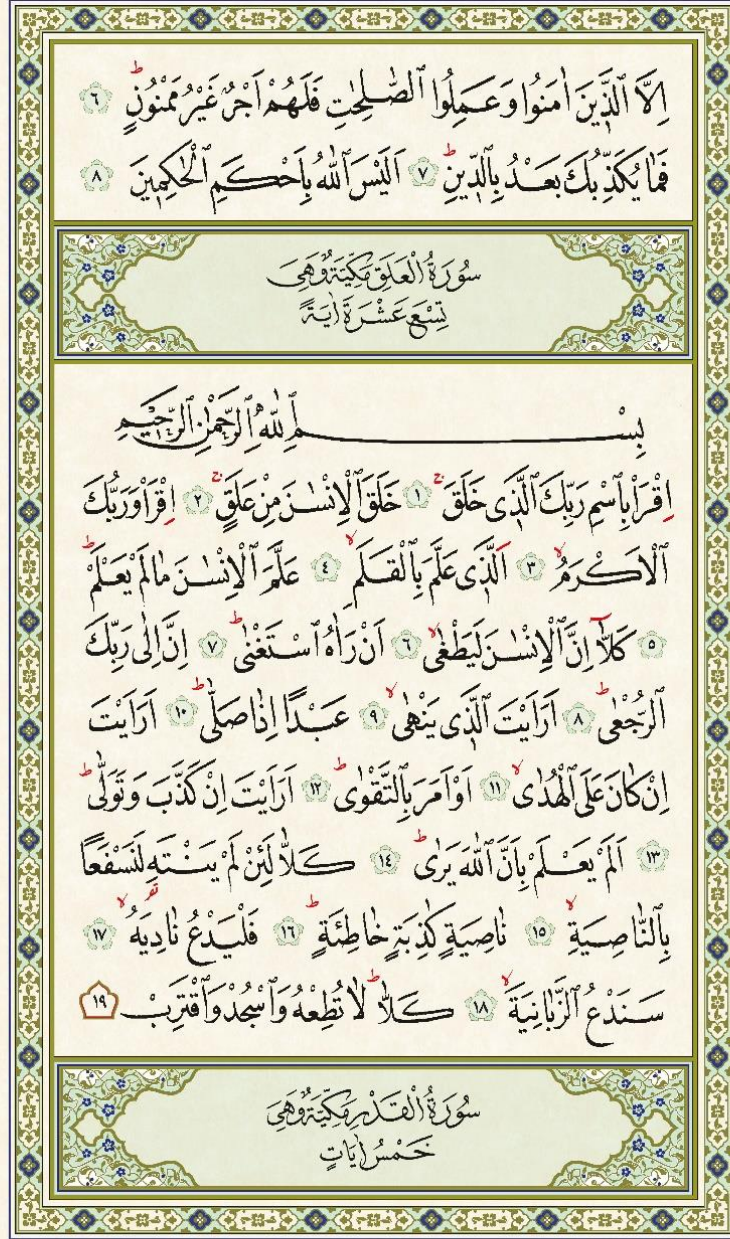 اِلَّا الَّذٖينَ اٰمَنُوا وَعَمِلُوا الصَّالِحَاتِ فَلَهُمْ اَجْرٌ غَيْرُ مَمْنُونٍؕ ٦
فَمَا يُكَذِّبُكَ بَعْدُ بِالدّٖينِؕ ٧ اَلَيْسَ اللّٰهُ بِاَحْكَمِ الْحَاكِمٖينَ ٨
سُورَةُ الْعَلَقِ مَكِّيَّةٌ وَهِيَ
تِسْعَ عَشْرَةَ اٰيَةً
بِسْمِ اللّٰهِ الرَّحْمٰنِ الرَّحٖيمِ
اِقْرَاْ بِاسْمِ رَبِّكَ الَّذٖى خَلَقَۚ ١ خَلَقَ الْاِنْسَانَ مِنْ عَلَقٍۚ ٢ اِقْرَاْ وَرَبُّكَ
الْاَكْرَمُۙ ٣ اَلَّذٖى عَلَّمَ بِالْقَلَمِۙ ٤ عَلَّمَ الْاِنْسَانَ مَا لَمْ يَعْلَمْؕ
٥ كَلَّٓا اِنَّ الْاِنْسَانَ لَيَطْغٰىۙ ٦ اَنْ رَاٰهُ اسْتَغْنٰىؕ ٧ اِنَّ اِلٰى رَبِّكَ
الرُّجْعٰىؕ ٨ اَرَاَيْتَ الَّذٖى يَنْهٰىۙ ٩ عَبْدًا اِذَا صَلّٰىؕ ١٠ اَرَاَيْتَ
اِنْ كَانَ عَلَى الْهُدٰىۙ ١١ اَوْ اَمَرَ بِالتَّقْوٰىؕ ١٢ اَرَاَيْتَ اِنْ كَذَّبَ وَتَوَلّٰىؕ
١٣ اَلَمْ يَعْلَمْ بِاَنَّ اللّٰهَ يَرٰىؕ ١٤ كَلَّا لَئِنْ لَمْ يَنْتَهِ لَنَسْفَعًا
بِالنَّاصِيَةِۙ ١٥ نَاصِيَةٍ كَاذِبَةٍ خَاطِئَةٍؕ ١٦ فَلْيَدْعُ نَادِيَهُۙ ١٧
سَنَدْعُ الزَّبَانِيَةَۙ ١٨ كَلَّاؕ لَا تُطِعْهُ وَاسْجُدْ وَاقْتَرِبْ ١٩
سُورَةُ الْقَدْرِ مَكِّيَّةٌ وَهِيَ
خَمْسُ اٰيَاتٍ